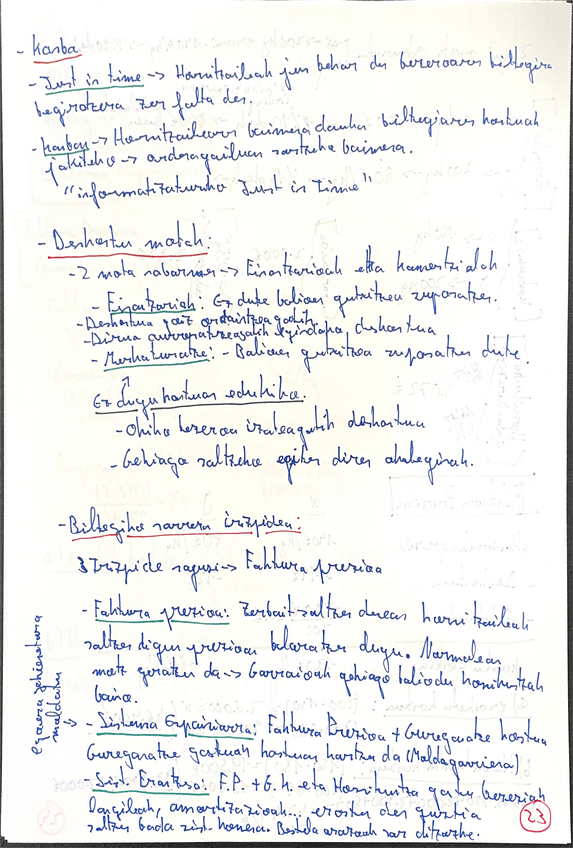 - Kanba
- Just in time -> Hornitzaileak jun behar du bezeroaren biltegira
begiratzera zer falta den.
- Kanban -> Hornitzailearen baimena dauka biltegiaren kostuak
jakiteko -> ordenagailuan sartzeko baimena.
"informatizaturiko Just in Time"
- Deskontu motak:
- 2 mota nabarmen -> Finantzarioak eta komertzialak
- Finantzariak: Ez dute balioen gutxitzea suposatzen.
- Deskontua goiz ordaintzeagatik
- Dirua aurreratzeagatik egindako deskontua
- Merkaturatze: - Balioen gutxitzea suposatzen dute.
Ez dugu kostuan edukiko.
- Ohiko bezeroa izateagatik deskontua
- Gehiago saltzeko egiten diren ahaleginak.
- Biltegiko sarrera irizpidea:
3 Irizpide nagusi -> Faktura prezioa
- Faktura prezioa: Zerbait saltzen duenean hornitzaileak
saltzen digun prezioan baloratzen dugu. Normalean
motz geratzen da -> Garraioak gehiago baliodu
baino.
Egoera gehienetara
moldatu ->
- Sistema Espainiarra: Faktura Prezioa + Gureganatze kostua
Gureganatze gastuak kostuan hartzen da (Maldagarriena)
- Sist. F.P. + G.K. eta gastu bereziak
langileak, amortizazioak... erosten den guztia
saltzen bada sist. honena. Bestela arazoak sor ditzake.
23